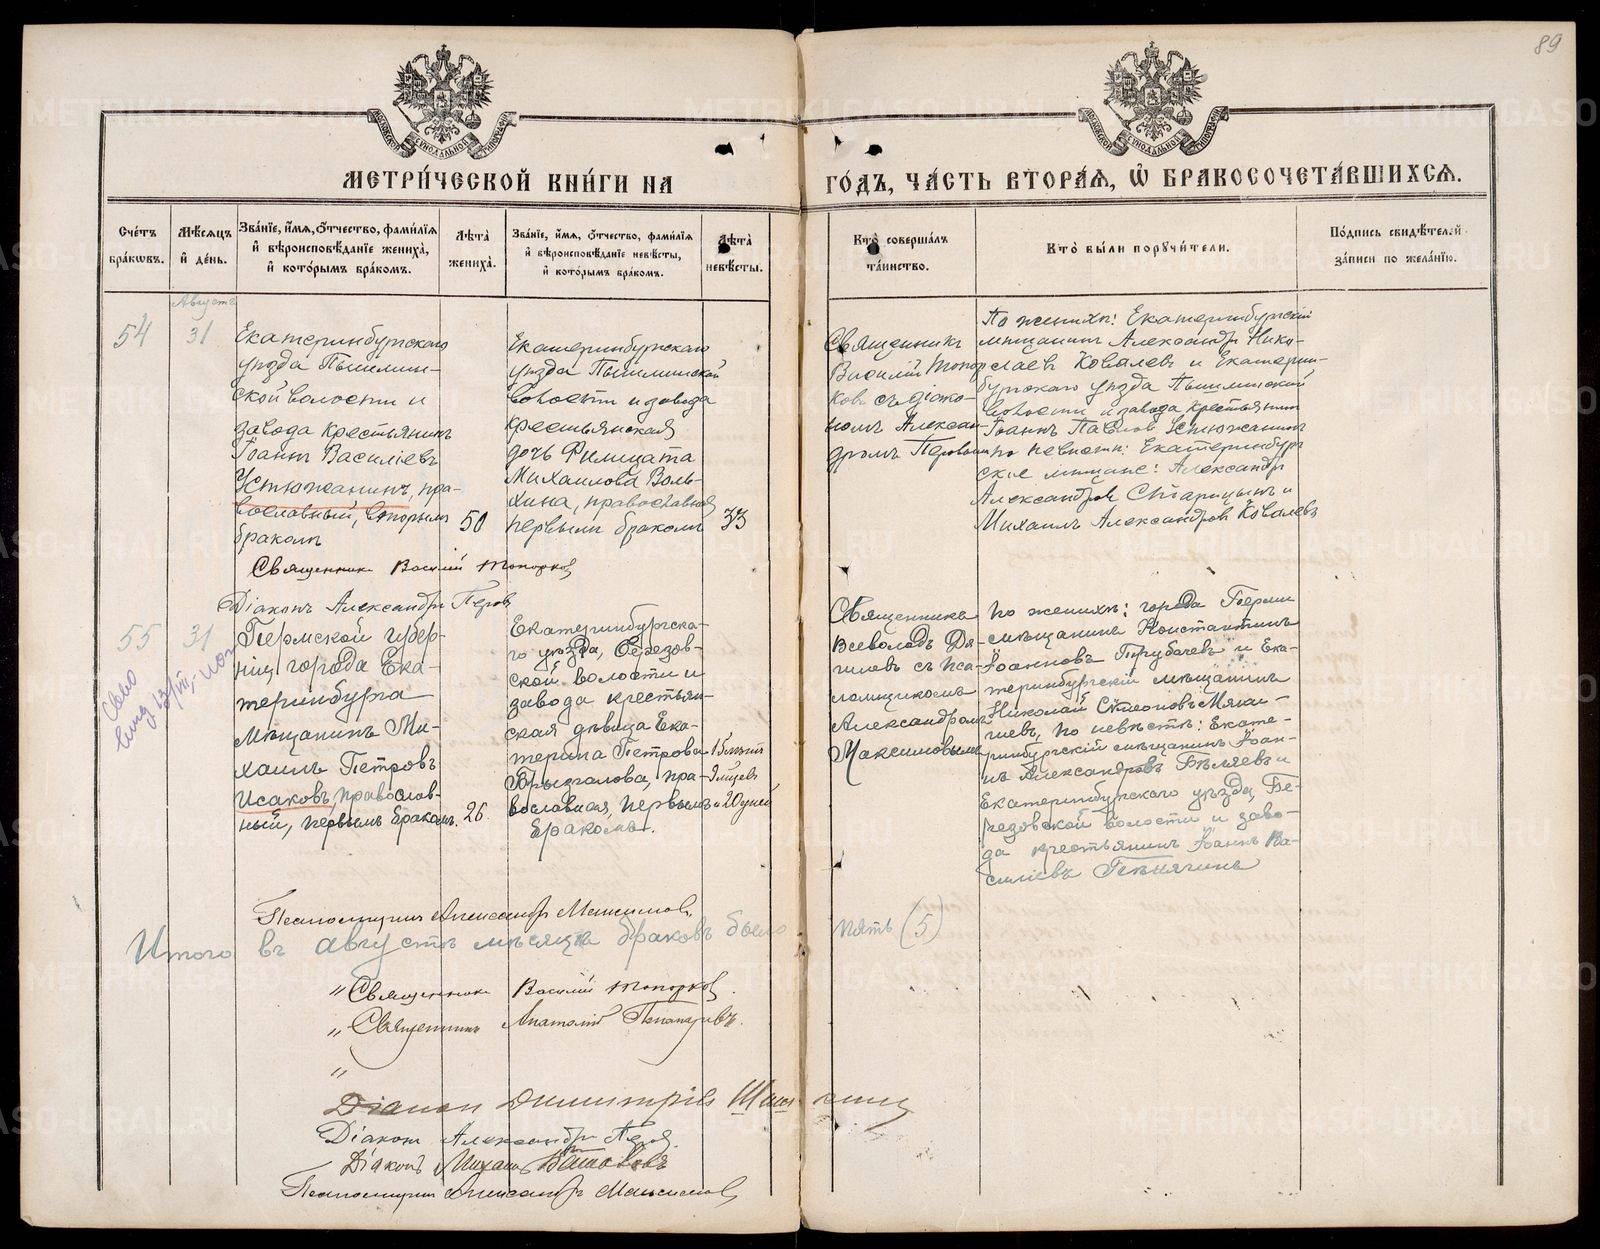 89
МЕТРИ́ЧЕСКОЙ КНИ́ГИ НА
ГО́ДЪ, ЧА́СТЬ ВТОРА́Я, Ѡ БРАКОСОЧЕТА́ВШИХСЯ.
Сче́тъ бра́ковъ.
Мѣ́сяцъ и де́нь.
Зва́ніе, и́мя, о́тчество, фами́лія и вѣроисповѣ́даніе жениха́, и кото́рымъ бра́комъ.
Лѣ́та жениха́.
Зва́ніе, и́мя, о́тчество, фами́лія и вѣроисповѣ́даніе невѣ́сты, и кото́рымъ бра́комъ.
Лѣ́та невѣ́сты.
Кто̀ соверша́лъ та́инство.
Кто̀ бы́ли поручи́тели.
По́дпись свидѣ́телей за́писи по жела́нію.
Августъ
54
31
Екатеринбургскаго
уѣзда Пышмин-
ской волости и
завода крестьянинъ
Іоаннъ Василіевъ
Устюжанинъ, пра-
вославный, вторымъ
бракомъ
50
Екатеринбургскаго
уѣзда Пышминской
волости и завода
крестьянская
дочь Филицата
Михаилова Воль-
хина, православная
первымъ бракомъ
33
Священникъ
Василій Топор
ковъ съ діако-
номъ Алексан-
дромъ Перовымъ
По женихѣ: Екатеринбургскій
мѣщанинъ Александръ Нико-
лаевъ Ковалевъ и Екатерин-
бургскаго уѣзда Пышминской
волости и завода крестьянинъ
Іоаннъ Павловъ Устюжанинъ
по невѣстѣ: Екатеринбург
скіе мѣщане: Александръ
Александровъ Старицынъ и
Михаилъ Александровъ Ковалевъ
Священникъ Василій Топорковъ
Діаконъ Александръ Перовъ
55
31
Пермской губер-
ніи, города Ека-
теринбурга
мѣщанинъ Ми-
хаилъ Петровъ
Исаковъ, православ-
ный, первымъ бракомъ.
26
Екатеринбургска-
го уѣзда, Березов-
ской волости и
завода крестьян-
ская дѣвица Ека-
терина Петрова
Брызгалова, пра-
вославная, первымъ
бракомъ.
15 лѣтъ
9 мѣсцевъ
и 20 дней
Священникъ
Всеволодъ Дя-
гилевъ съ пса-
ломщикомъ
Александромъ
Максимовымъ
По женихѣ: города Перми
мѣщанинъ Константинъ
Іоанновъ Трубачевъ и Ека-
теринбургскій мѣщанинъ
Николай Симеоновъ Мяки-
шевъ, по невѣстѣ: Екате-
ринбургскій мѣщанинъ Іоан-
нъ Александровъ Бѣляевъ и
Екатеринбургскаго уѣзда, Бе-
резовской волости и заво-
да крестьянинъ Іоаннъ Ва-
силіевъ
Псаломщикъ Александръ Максимовъ
Итого въ августѣ мѣсяцѣ браковъ было пять (5)
" Священникъ Василій Топорковъ.
" Священникъ Анатолій
"
Діаконъ Димитрій
Діаконъ Александръ Перов.
Діаконъ Михаилъ
Псаломщикъ Александръ Максимовъ